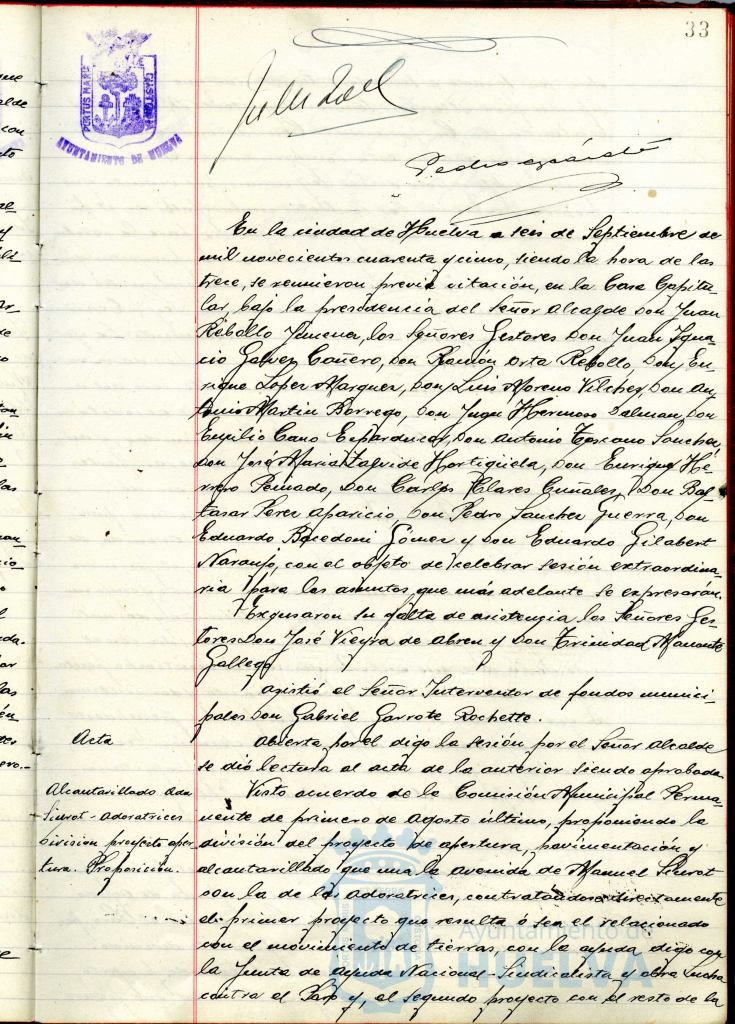 33
PORTUS MARIS
CUSTODIA
AYUNTAMIENTO DE HUELVA
En la ciudad de Huelva a seis de Septiembre de
mil novecientos cuarenta y cinco, siendo la hora de las
trece, se reunieron previa citación, en la Casa Capitu-
lar, bajo la presidencia del Señor Alcalde Don Juan
Rebollo Jimenez, los Señores Gestores Don Juan Igna-
cio Galvez Cañero, Don Ramon Orta Rebollo, Don En-
rique Lopez Marquez, Don Luis Moreno Vilchez, Don An-
tonio Martin Borrego, Don Juan Hermoso Dalman, Don
Emilio Cano Don Antonio Toscano Sanchez,
Don José Maria Hortigüela, Don Enrique He-
rrero Peinado, Don Carlos Don Bal-
tasar Perez Aparicio, Don Pedro Sanchez Guerra, Don
Eduardo Gómez y Don Eduardo Gilabert
Naranjo, con el objeto de celebrar sesión extraordina-
ria para los asuntos que más adelante se expresarán.
Excusaron su falta de asistencia los Señores Ges-
tores Don José Vieyra de Abreu y Don Trinidad
Gallego
Asistió el Señor Interventor de fondos munici-
pales Don Gabriel Garrote Rochette.
Acta
Abierta, por el digo la sesión por el Señor Alcalde
se dió lectura al acta de la anterior siendo aprobada.
Alcantarillado Avda
Siurot-Adoratrices
División proyecto aper-
tura. Proposición.
Visto acuerdo de la Comisión Municipal Perma-
nente de primero de Agosto último, proponiendo la
división del proyecto de apertura, pavimentación y
alcantarillado que una la avenida de Manuel Siurot
con la de las Adoratrices, contratandose directamente
el primer proyecto que resulta ó sea el relacionado
con el movimiento de tierras, con la ayuda digo con
la Junta de ayuda Nacional-Sindicalista y obra Lucha
contra el Paro y, el segundo proyecto con el resto de la
Ayuntamiento de
HUELVA